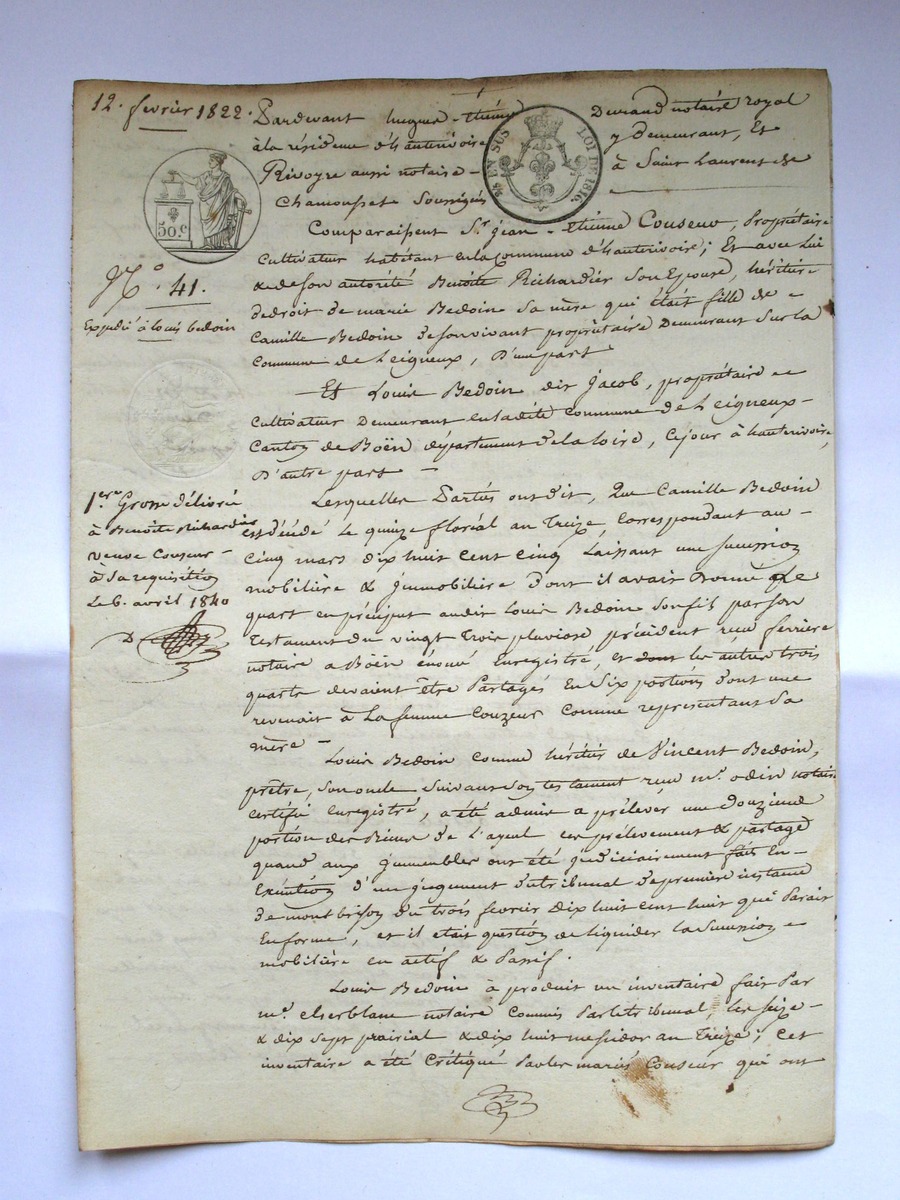 12. fevrier 1822.
Pardevant hugue-Etiéne Durand notaire royal
à la résidence d'hauterivoire y demeurant, Et
Rivoyre aussi notaire - à Saint Laurent de
Chamousset Soussignés
EN SUS LOI DE 1816.
50.C
N.o 41.
Expédié à louis bedoin
Comparaissent Sr. jean-Etienne Couseur, Propriétaire
cultivateur habitant en la Commune d'hauterivoire; Et avec Lui
& de son autorité Benoite Richardier son Epouse, héritière
de droit de marie Bedoin sa mère qui était fille de
Camille Bedoin de son vivant propriétaire Demeurant sur la
Commune de Leigneux, D'une part
Et Louis Bedoin dit Jacob, propriétaire
Cultivateur Demeurant en ladite commune de Leigneux-
Canton de Böen département de la loire, Cejour à hauterivoire,
D'autre part -
1.ere Grosse délivrée
à Benoite Richardier
veuve Couseur -
à Sa requisition
Le 6. avril 1840
Lesquelles Parties ont dit, Que Camille Bedoin
est décédé le quinze floréal an Treize, Correspondant au -
Cinq mars dix huit cent cinq Laissant une succession
mobilière & jmmobilière dont il avait donné Le
quart en préciput audit Louis Bedoin son fils par son
Testament du vingt Trois pluviose précédent reçu ferriere
notaire a Böen Enregistré, et dont les autres trois
quarts devaient être Partagés En Six portions dont une
revenait à La femme Couzeur Comme representant Sa
mère -
Louis Bedoin comme héritier de Vincent Bedoin,
prêtre, son oncle suivant son testament reçu m.e odin notaire
certifié enregistré, a été admis a prélever une douzieme
portion des Biens de L'ayeul ces prélevement & partage
quand aux jmmeubles ont été judiciairement faits En-
Exécution d'un jugement du tribunal de première instance
de montbrison du trois fevrier Dix huit cent huit que Parait
En forme, et il était question de liquider la Succession
mobilière en actif & Passif.
Louis Bedoin à produit un inventaire fait Par
m.e notaire Commis Par le tribunal, les seize -
& dix sept prairial & dix huit messidor an Treize; Cet
inventaire a été Critiqué Par les mariés Couseur qui ont